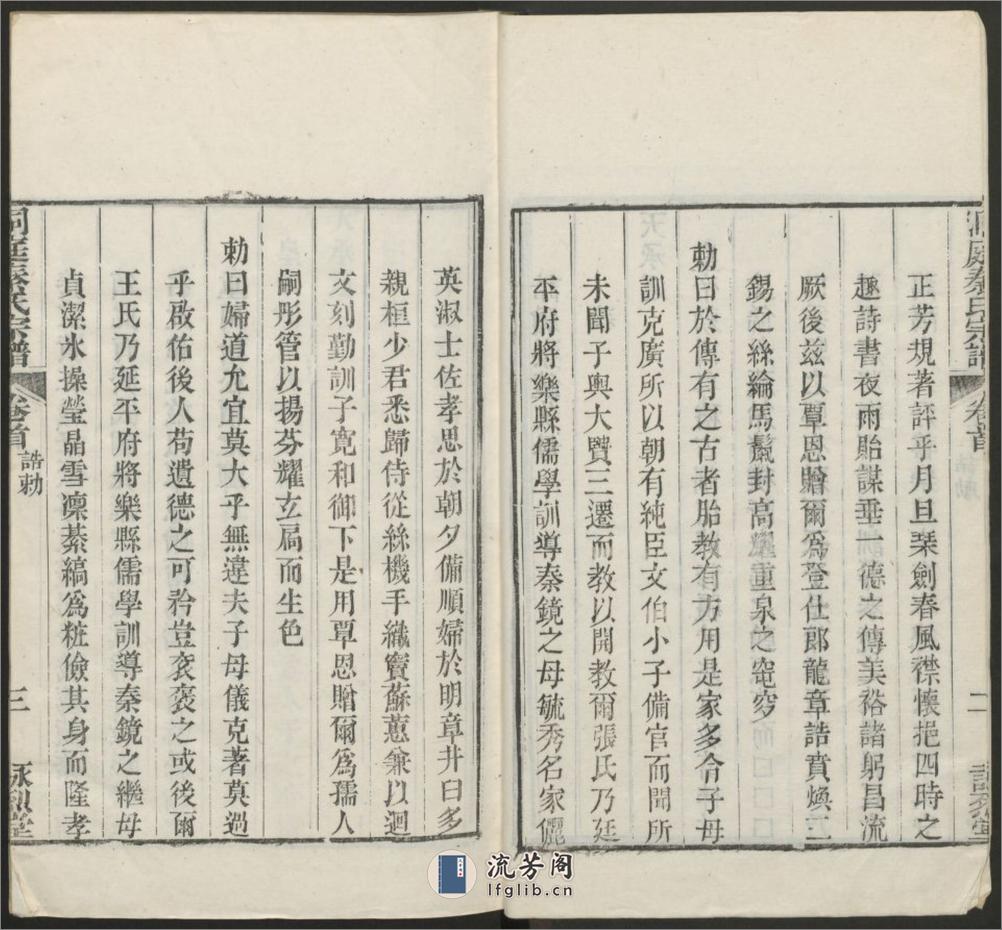 正芳規著評乎月旦琹劍春風襟懷挹四時之
趣詩書夜雨貽謀垂一德之傳美裕諸躬昌流
厥後兹以覃恩贈爾爲登仕郎龍章誥賁煥三
錫之絲綸馬鬣封高耀重泉之窀穸
勅曰於傳有之古者胎教有方用是家多令子母
訓克廣所以朝有純臣文伯小子備官而聞所
未聞子輿大賢三遷而教以開教爾張氏乃延
平府將樂縣儒學訓導秦鏡之母毓秀名家儷
洞庭秦氏宗譜
卷首
二
英淑士佐孝思於朝夕備順婦於明章井臼多
親桓少君悉歸侍從絲機手織竇蘇蕙兼以迴
文刻勤訓子寛和御下是用覃恩贈爾爲孺人
嗣彤管以揚芬耀玄扃而生色
勅曰婦道允宜莫大乎無違夫子母儀克著莫過
乎啟佑後人苟遺德之可矜豈衮褒之或後爾
王氏乃延平府將樂縣儒學訓導秦鏡之繼母
貞潔氷操瑩晶雪凛綦縞爲粧儉其身而隆孝
洞庭秦氏宗譜
卷首
誥勅
三
流芳阁
lfglib.cn